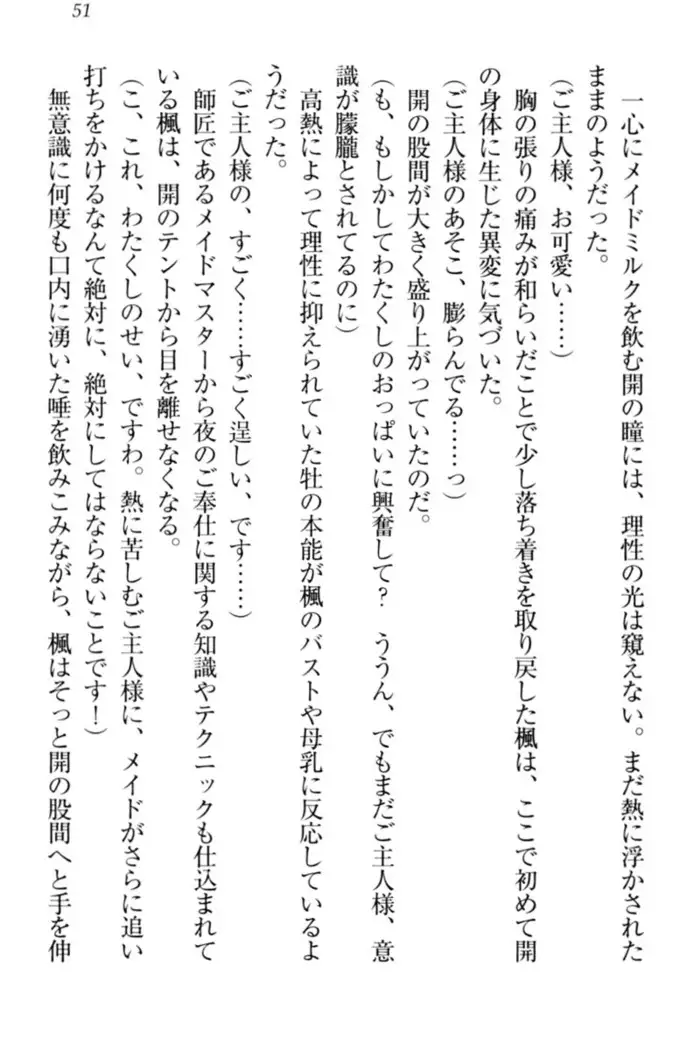 51
一心にメイドミルクを飲む開の瞳には、理性の光は窺えない。まだ熱に浮かされた
ままのようだった。
(ご主人様、お可愛い……)
胸の張りの痛みが和らいだことで少し落ち着きを取り戻した楓は、ここで初めて開
の身体に生じた異変に気づいた。
(ご主人様のあそこ、膨らんでる……っ)
開の股間が大きく盛り上がっていたのだ。
(も、もしかしてわたくしのおっぱいに興奮して?　ううん、でもまだご主人様、意
識が朦朧とされてるのに)
高熱によって理性に抑えられていた牡の本能が楓のバストや母乳に反応しているよ
うだった。
(ご主人様の、すごく……すごく逞しい、です……)
師匠であるメイドマスターから夜のご奉仕に関する知識やテクニックも仕込まれて
いる楓は、開のテントから目を離せなくなる。
(こ、これ、わたくしのせい、ですわ。熱に苦しむご主人様に、メイドがさらに追い
打ちをかけるなんて絶対に、絶対にしてはならないことです!)
無意識に何度も口内に湧いた唾を飲みこみながら、楓はそっと開の股間へと手を伸